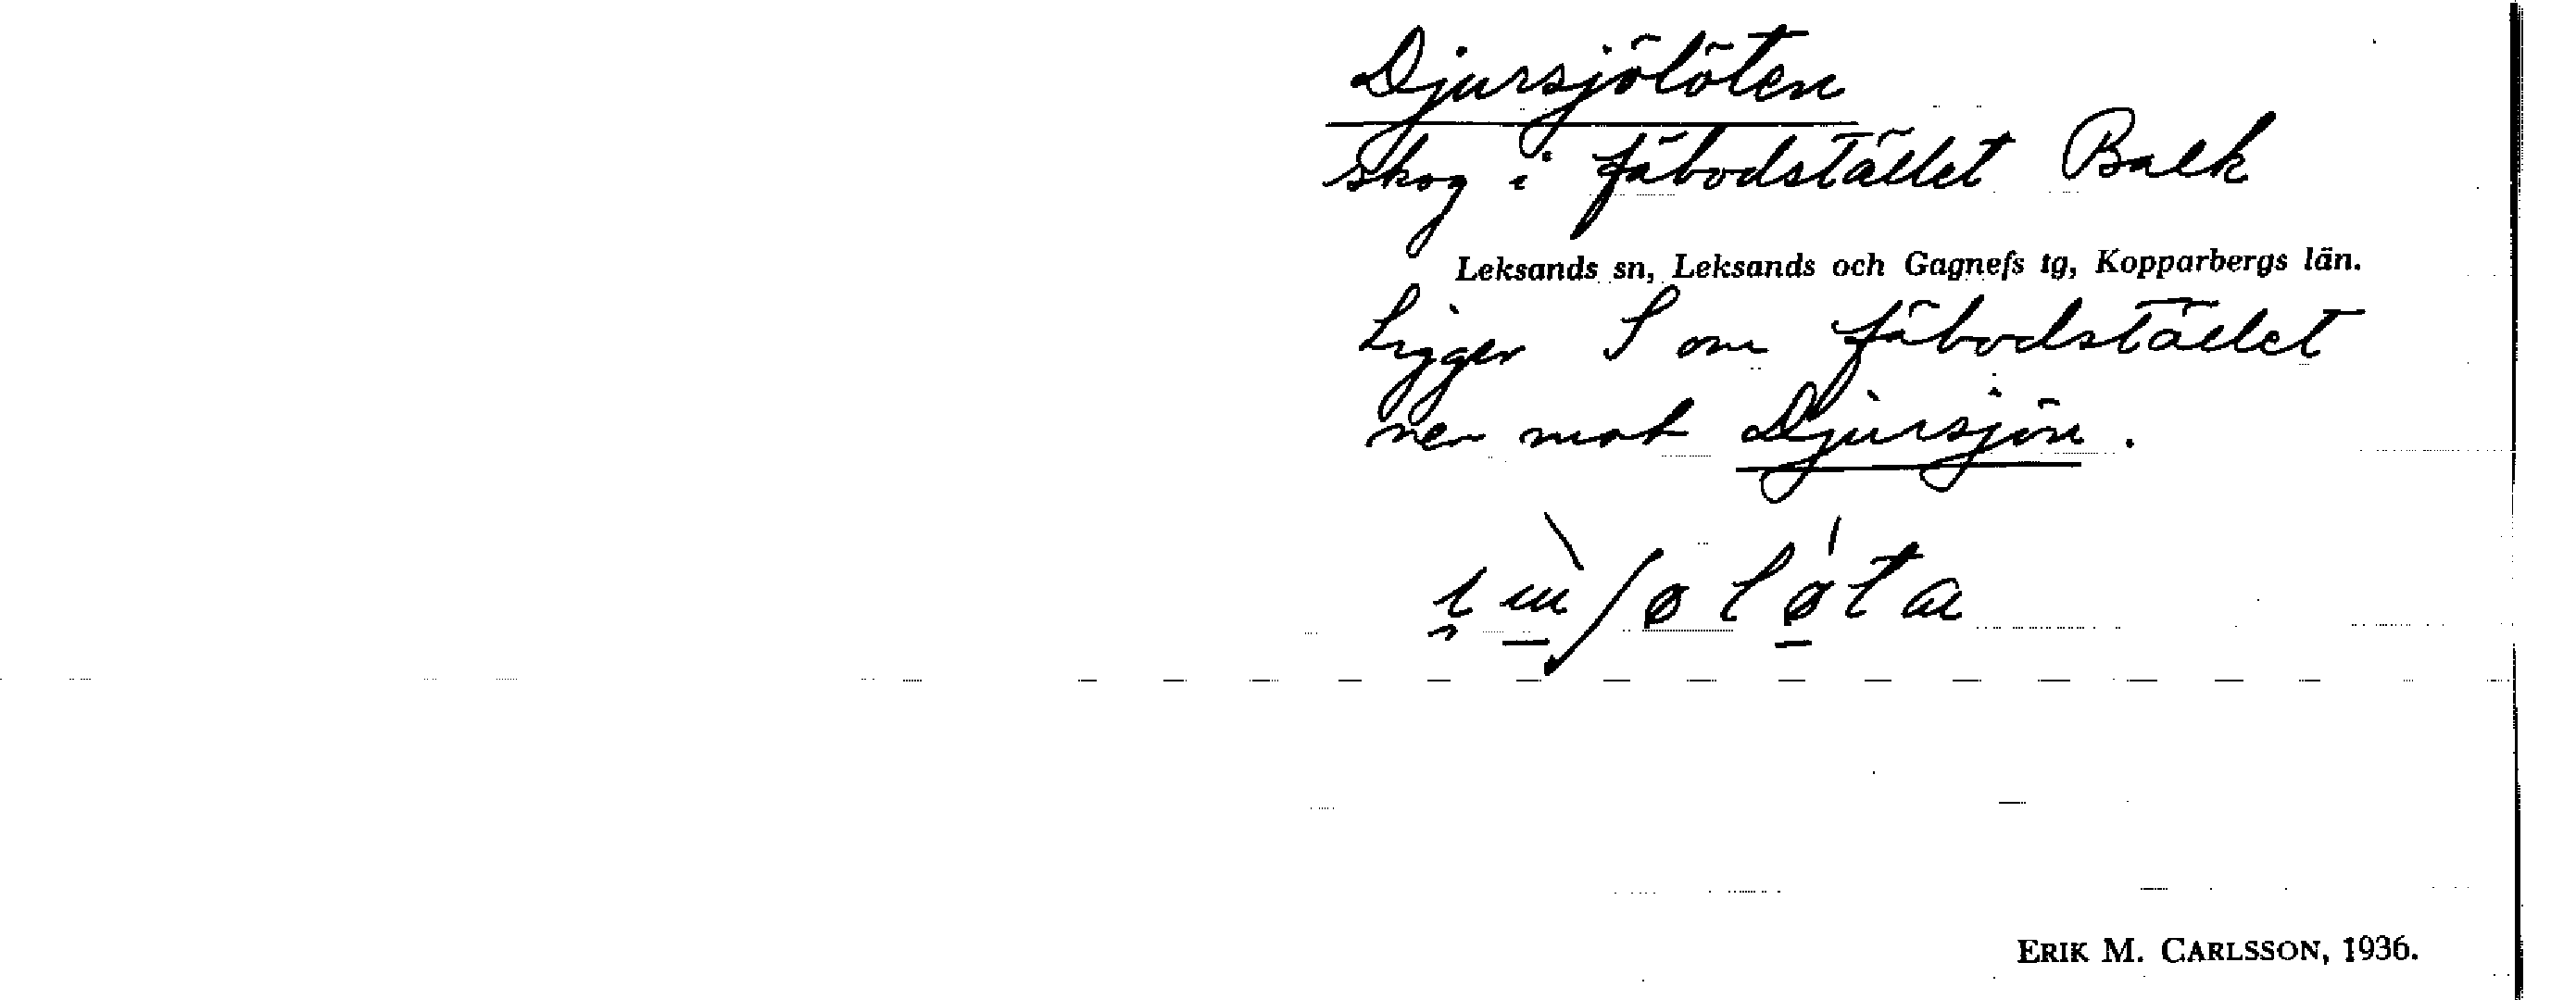 Djursjölöten
skog i fäbodstället Balk
Leksands sn, Leksands och Gagnefs tg, Kopparbergs län.
Ligger S om fäbodstället
ner mot Djursjön.
ERIK M. CARLSSON, 1936.